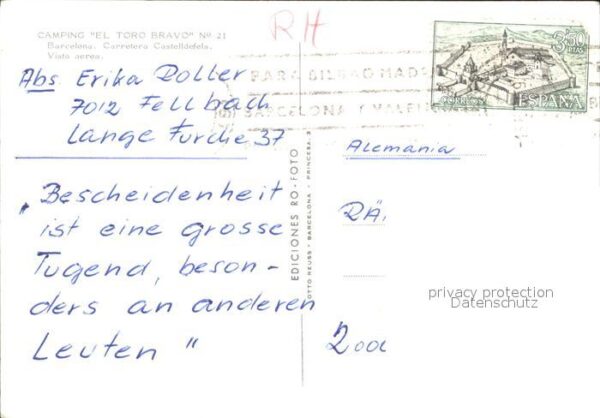 CAMPING "EL TORO BRAVO" Nº 21
Barcelona. Carretera Castelldefels.
Vista aerea.
RH
3'50
PTAS
CORREOS ESPAÑA
PARA BILBAO MAD
BARCELONA Y VALENCIA
Abs. Erika Doller
7012 Fellbach
Lange Furche 37
„Bescheidenheit
ist eine grosse
Tugend, beson-
ders an anderen
Leuten "
EDICIONES RO-FOTO
OTTO REUSS - BARCELONA - PRINCESA-3
Alemania
RÄ.
privacy protection
Datenschutz
2000